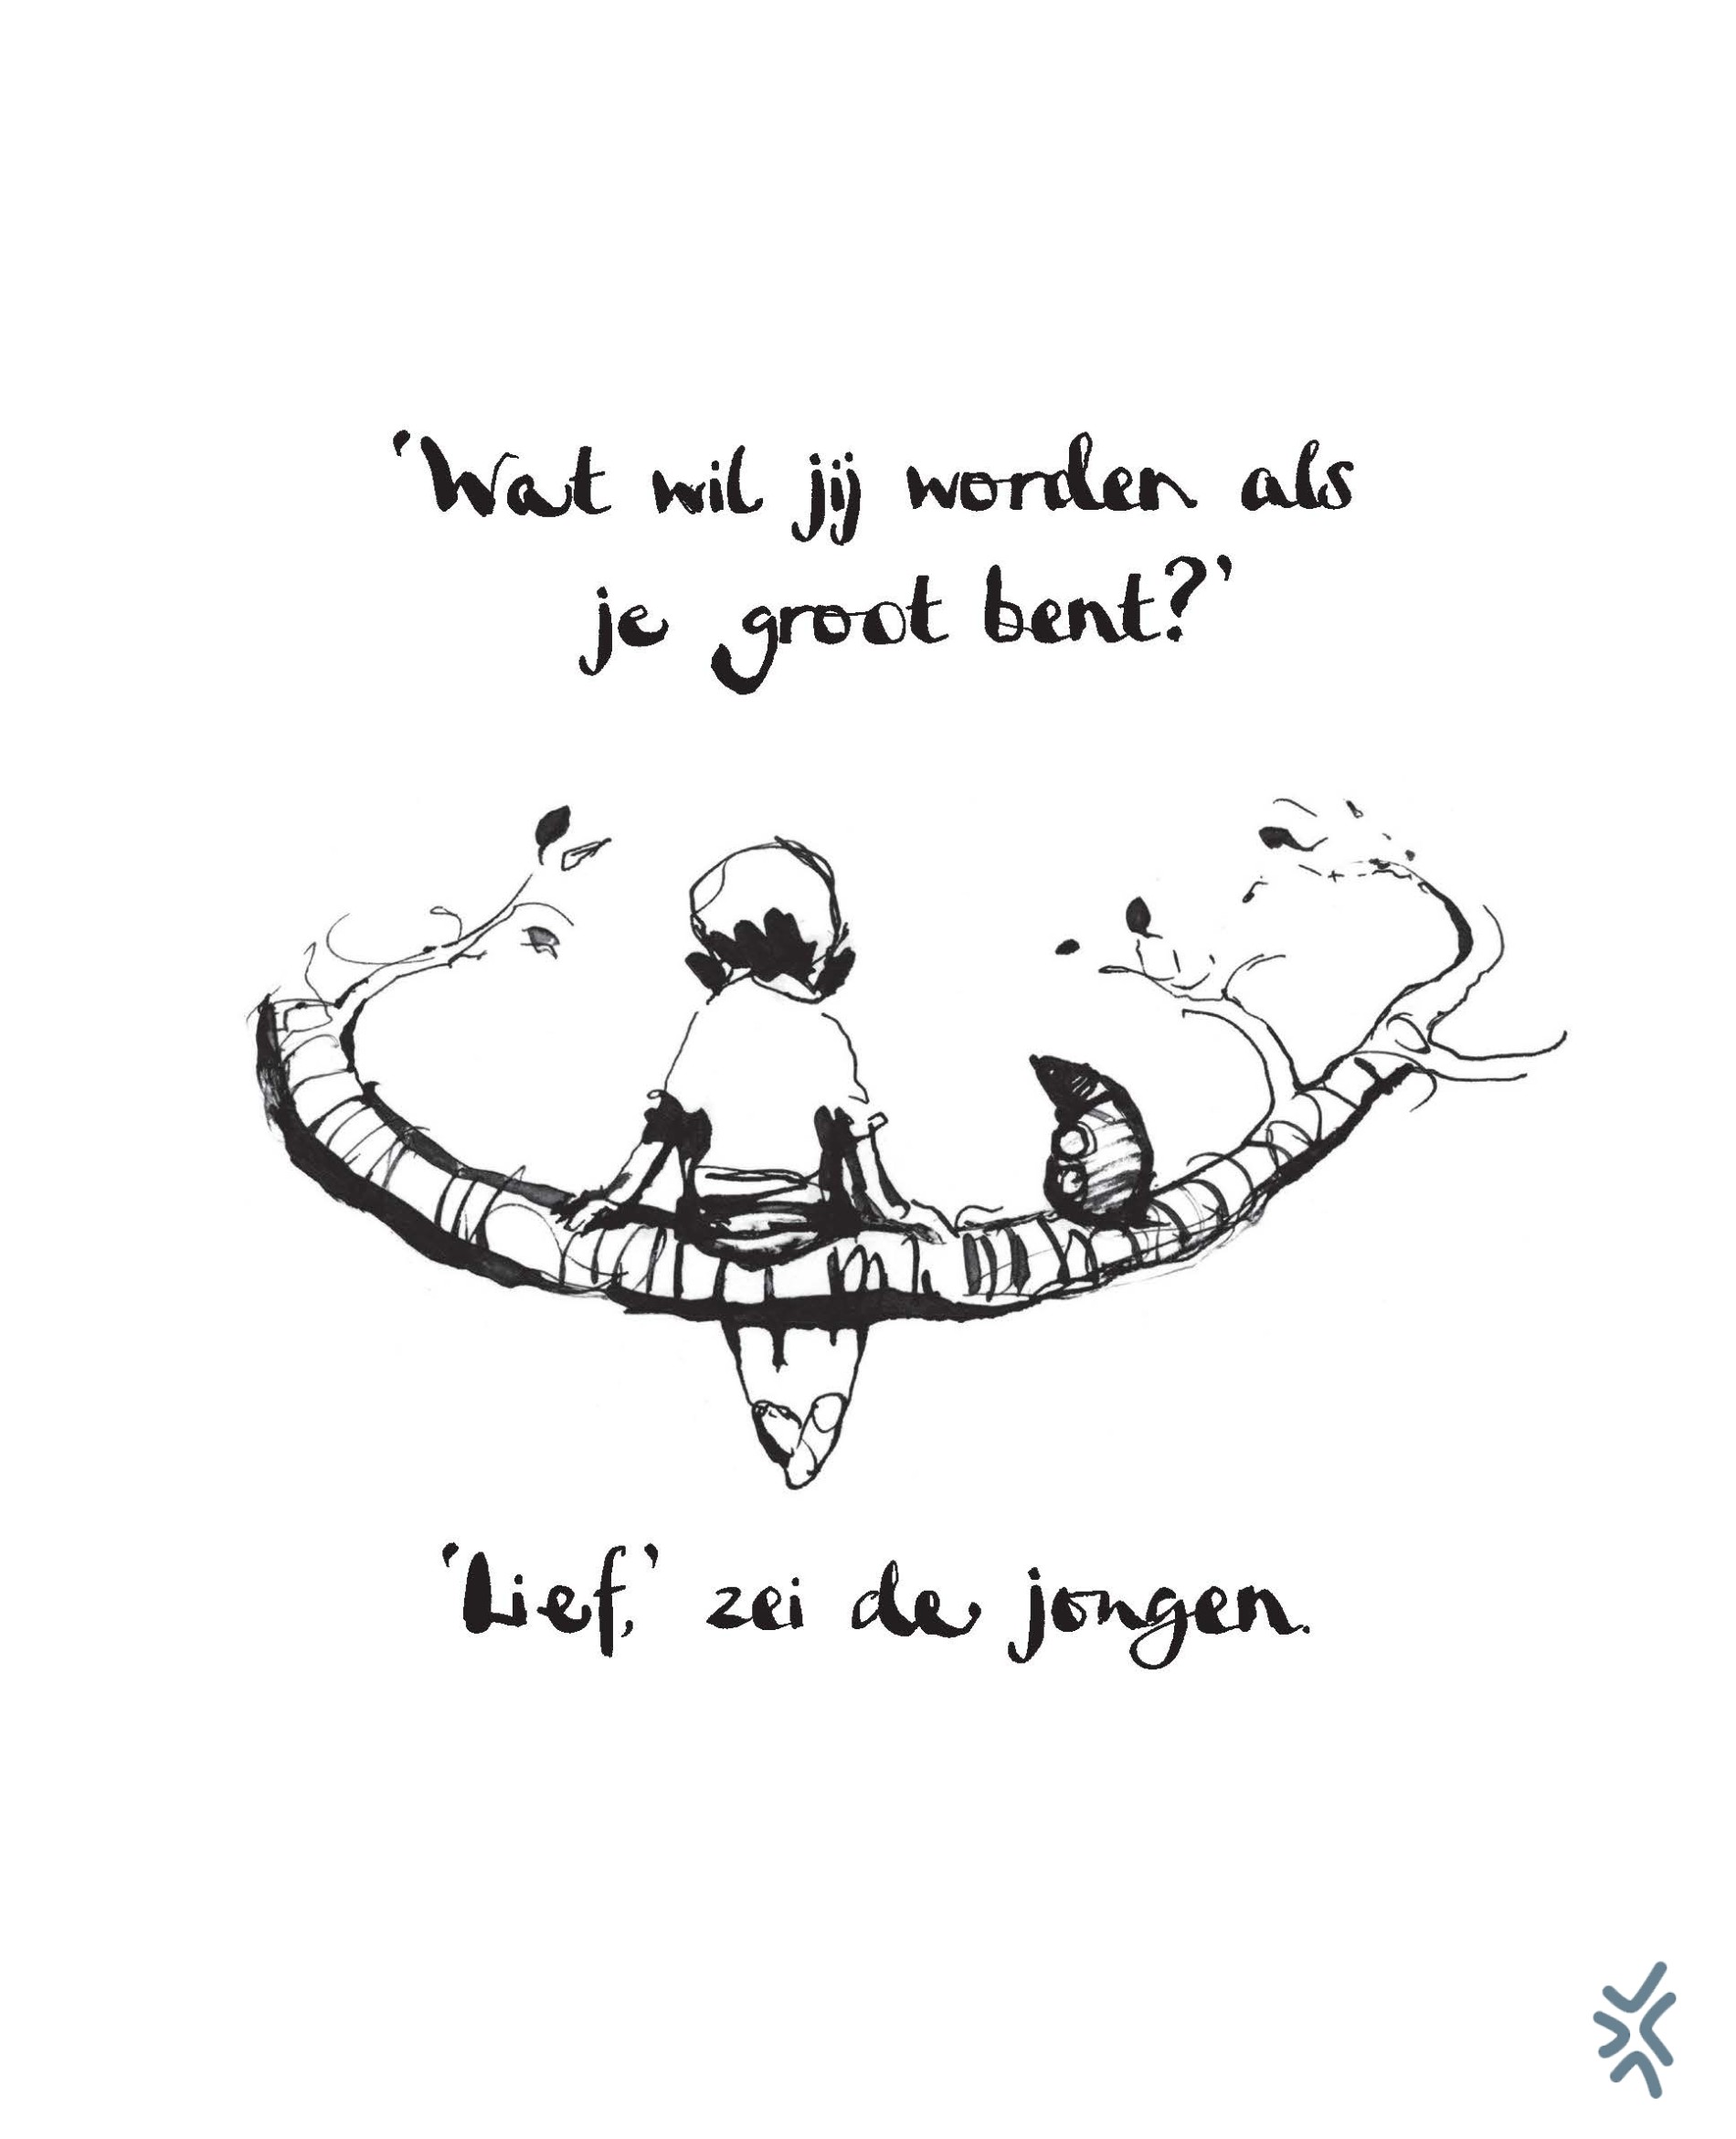 ‘Wat wil jij worden als
je groot bent?’
‘Lief,’ zei de jongen.